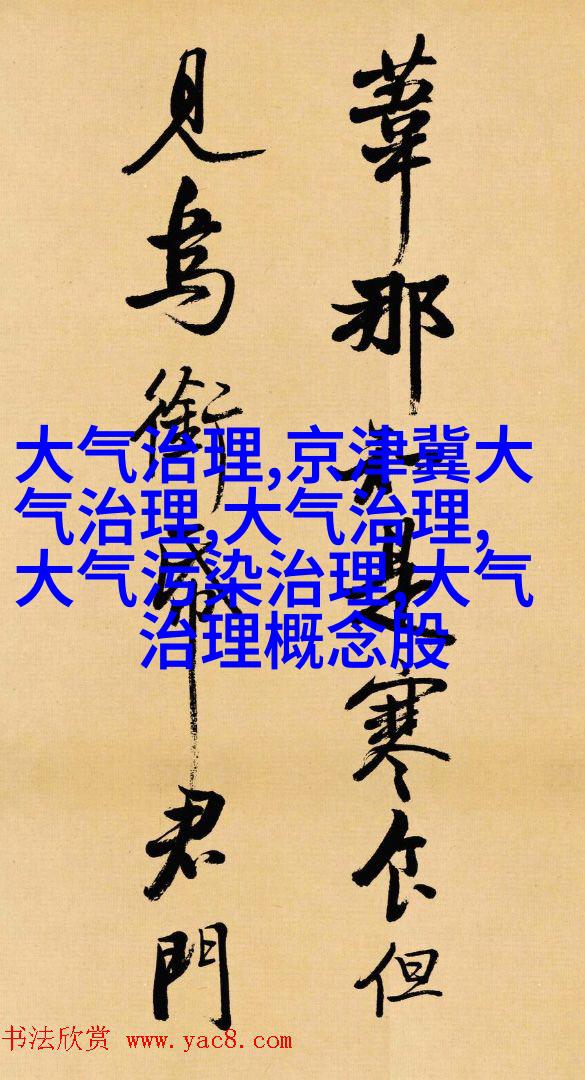 葦那是寒食但
見烏銜帋君門
大气治理,京津冀大
气治理,大气治理,
大气污染治理,大气
治理概念股
书法欣赏 www.yac8.com